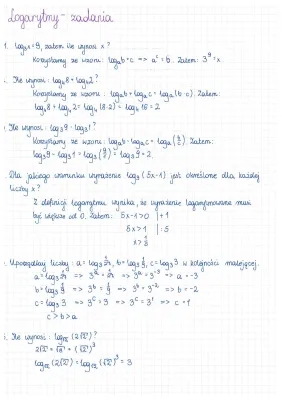 Logarytmy - zadania
1. log₃x = 9, zatem ile wynosi x?
Korzystamy ze wzoru: logₐb = c => aᶜ = b. Zatem: 3⁹ = x
Ile wynosi: log₄8 + log₄2?
Korzystamy ze wzoru: logₐb + logₐc = logₐ(b·c). Zatem:
log₄8 + log₄2 = log₄(8·2) = log₄16 = 2
Ile wynosi: log₃9 - log₃1?
Korzystamy ze wzoru: logₐb - logₐc = logₐ(b/c). Zatem:
log₃9 - log₃1 = log₃(9/1) = log₃9 = 2
Dla jakiego warunku wyrażenie log₅(5x-1) jest określone dla każdej
liczby x?
Z definicji logarytmu wynika, że wyrażenie logarytmowane musi
być większe od 0. Zatem: 5x-1>0 |+1
5x>1 |:5
x>1/5
Uporządkuj liczby: a = log₃1/27, b = log₃1/9, c = log₃3 w kolejności malejącej.
a = log₃1/27 => 3ᵃ = 1/27 => 3ᵃ = 3⁻³ => a = -3
b = log₃1/9 => 3ᵇ = 1/9 => 3ᵇ = 3⁻² => b = -2
c = log₃3 => 3ᶜ = 3 => 3ᶜ = 3¹ => c = 1
c > b > a
Ile wynosi: log√2(2√2)?
2√2 = √8 = (√2)³
log√2(2√2) = log√2(√2)³ = 3